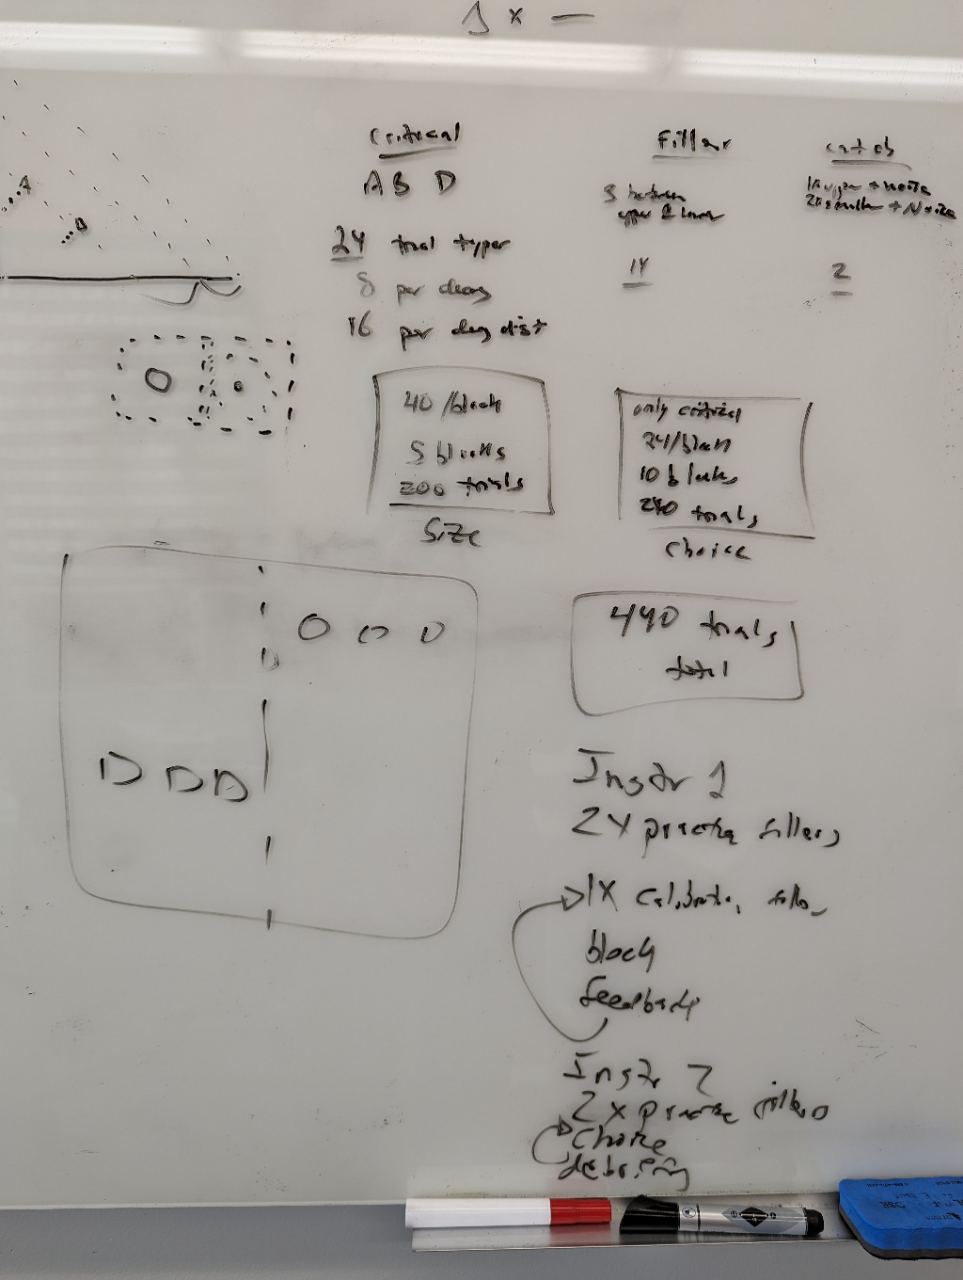 1 x —
Critical
A B D
24 trial types
8 per decoy
16 per decoy dist
Filler
3 between
upper & lower
14
catch
+ noise
smaller + Noise
2
A
40 /block
5 blocks
200 trials
Size
only critical
24/block
10 blocks
240 trials
choice
440 trials
total
O O O
D D D
Instr 1
2x practice fillers
1x calibration filler
block
feedback
Instr 2
2x practice fillers
choice
debriefing